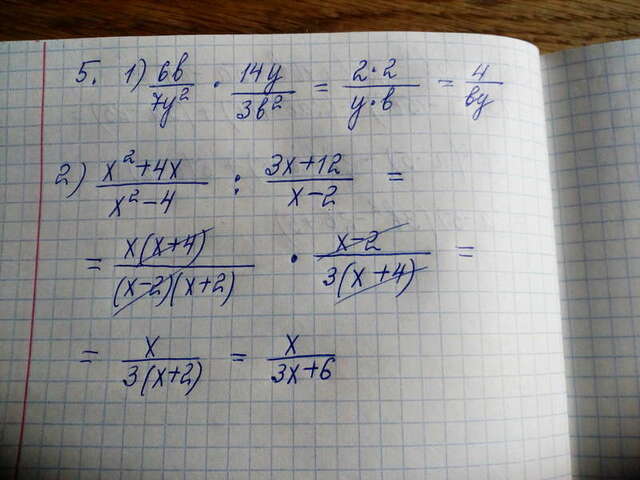 5. 1) 6в/7y² · 14y/3в² = 2·2/y·в = 4/вy
2) x²+4x/x²-4 : 3x+12/x-2 =
= x(x+4)/(x-2)(x+2) · x-2/3(x+4) =
= x/3(x+2) = x/3x+6